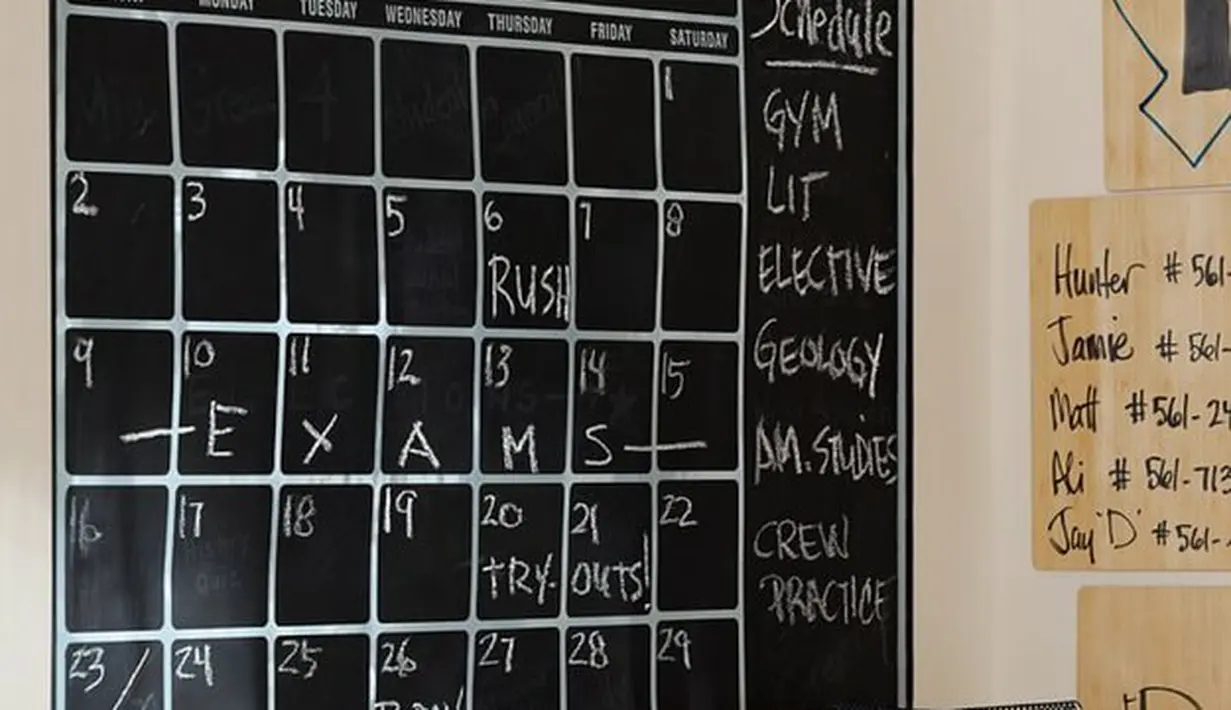 MONDAY TUESDAY WEDNESDAY THURSDAY FRIDAY SATURDAY
1
2 3 4 5 6 7 8
RUSH
9 10 11 12 13 14 15
— E X A M S —
16 17 18 19 20 21 22
TRY- OUTS!
23 / 24 25 26 27 28 29
Schedule
GYM
LIT
ELECTIVE
GEOLOGY
AM. STUDIES
CREW
PRACTICE
Hunter # 561-
Jamie # 561-
Matt # 561-24
Ali # 561-713
Jay 'D' # 561-